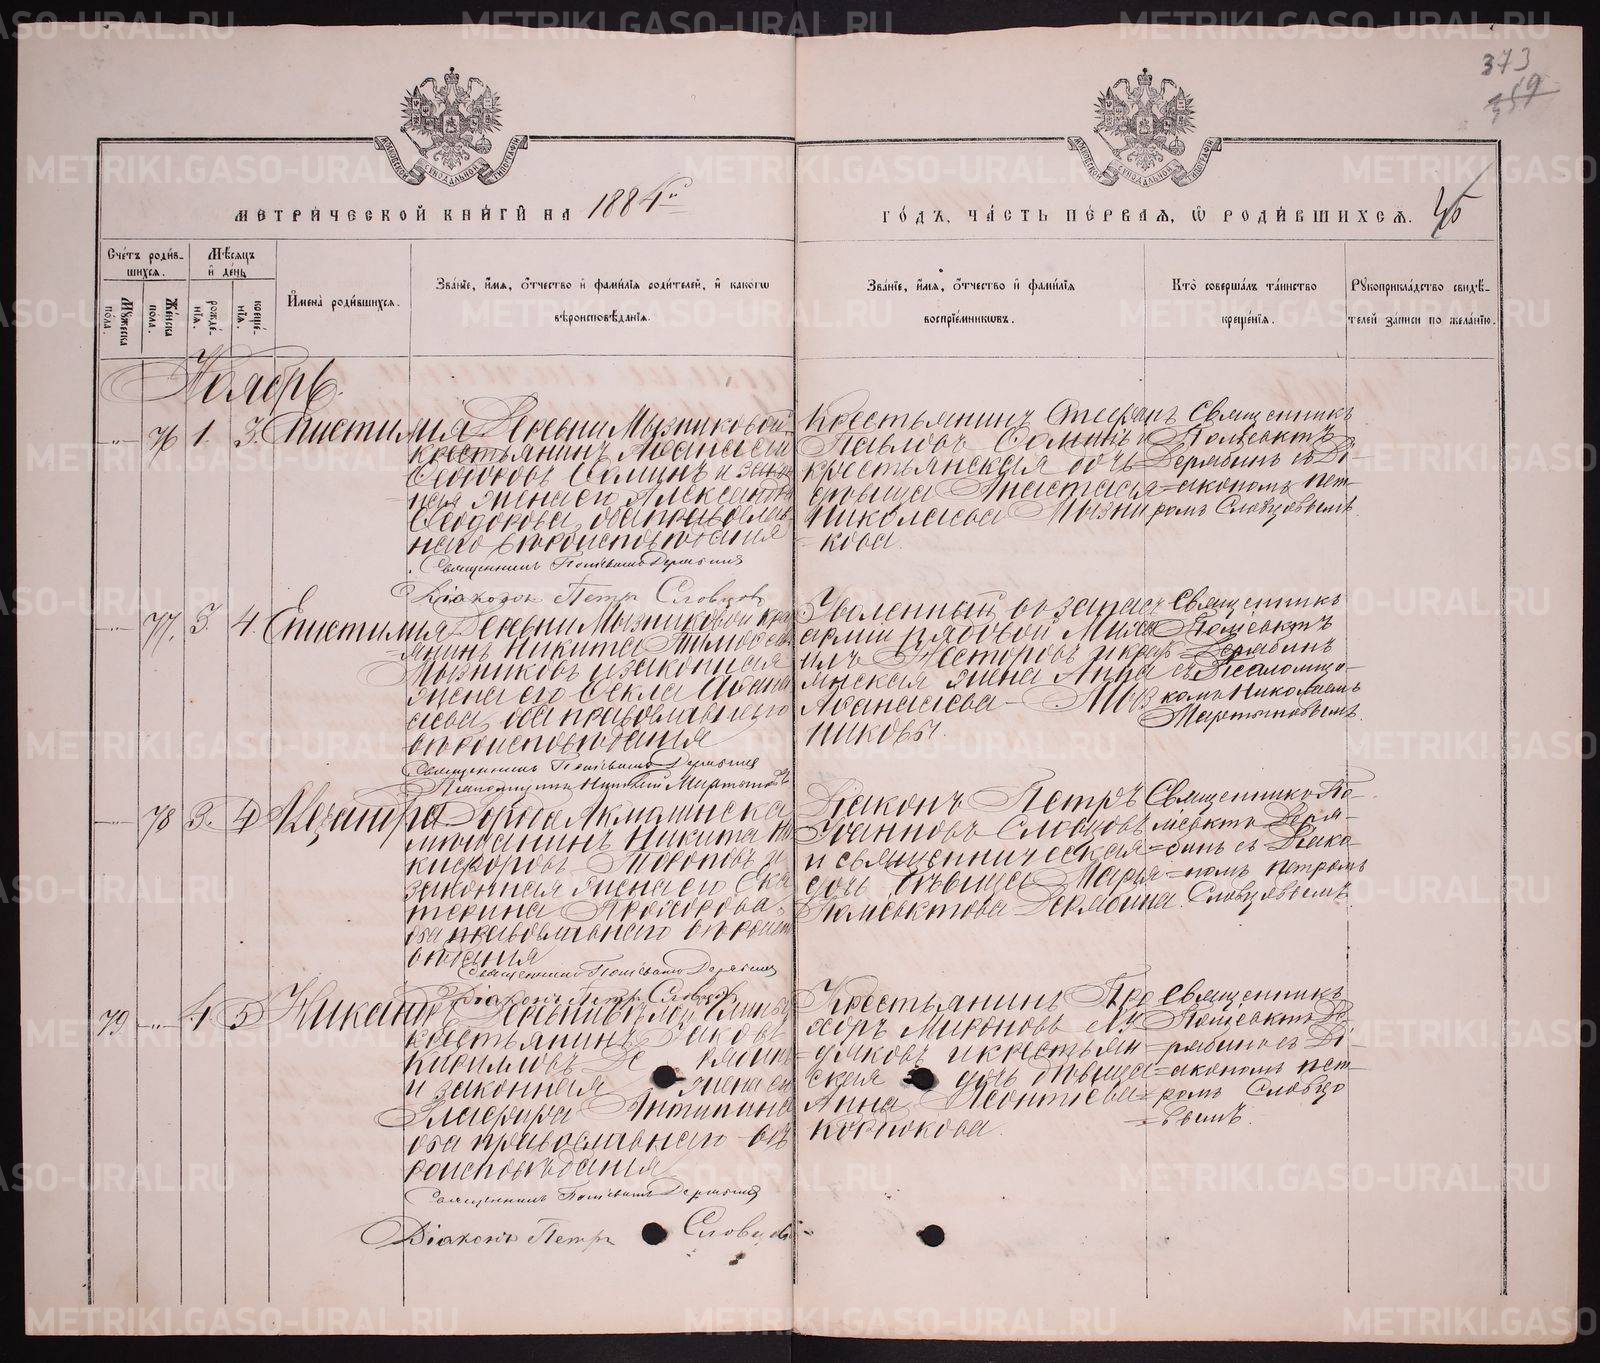 373
359
МОСКОВСКОЙ СѴНОДАЛЬНОЙ ТИПОГРАФІИ
МОСКОВСКОЙ СѴНОДАЛЬНОЙ ТИПОГРАФІИ
МЕТРИЧЕСКОЙ КНИГИ НА 1884й
ГОДЪ, ЧАСТЬ ПЕРВАЯ, Ѡ РОДИВШИХСЯ.
Счетъ родившихся.
Мѣсяцъ и день
Мужеска пола.
Женска пола.
рожденія.
крещенія.
Имена родившихся.
Званіе, имя, отчество и фамилія родителей, и какогѡ
вѣроисповѣданія.
Званіе, имя, отчество и фамилія
воспріемникѡвъ.
Кто совершалъ таинство
крещенія.
Рукоприкладство свидѣ-
телей записи по желанію.
Ноябрь.
76 1. 3. Епистимия
Деревни Мызниковой
крестьянинъ Афанасий
Феодоровъ Соминъ и закон
ная жена его Александра
Феодорова, оба православ
наго вѣроисповѣдания
Священникъ Полиевктъ Дерябинъ
Діаконъ Петръ Словцовъ
Крестьянинъ Стефанъ
Павловъ Соминъ и
крестьянская дочь
дѣвица Анастасия
Николаева Мызни
кова.
Священникъ
Полиевктъ
Дерябинъ съ Ді-
=акономъ Пет-
ромъ Словцовымъ
77. 3. 4. Епистимия
Деревни Мызниковой кре
янинъ Никита Тимофеев
Мызниковъ и законная
жена его Фекла Афана
сиева, оба православнаго
вѣроисповѣдания
Священникъ Полиевктъ Дерябинъ
Псаломщикъ Николай Мартыновъ
Уволенный въ запасъ
армии рядовой Миха
илъ Несторовъ и крес
янская жена Анна
Афанасиева Мыз
никовы.
Священникъ
Полиевктъ
Дерябинъ
съ Псаломщи-
комъ Николаемъ
Мартыновымъ.
78 3. 4
Города Акмолинска
мѣщанинъ Никита Ни
кифоровъ Тороповъ и
законная жена его Ека
терина Прохорова,
оба православнаго вѣроисп
овѣдания
Священникъ Полиевктъ Дерябинъ
Діаконъ Петръ Словцовъ
Діаконъ Петръ
Іоанновъ Словцовъ
и священническая
дочь дѣвица Мария
Полиевктова Дерябина.
Священникъ По-
лиевктъ Деря-
=бинъ съ Діако-
=номъ Петромъ
Словцовымъ
79 4 5 Никандръ
крестьянинъ Иаковъ
Кирилловъ
и законная жена его
Глафира Антипина
оба православнаго вѣ
роисповѣдания
Священникъ Полиевктъ Дерябинъ
Діаконъ Петръ Словцовъ
Крестьянинъ Про
хоръ Мироновъ
и крестьян
ская дочь дѣвица
Анна Леонтиева
Корюкова.
Священникъ
Полиевктъ Де-
=рябинъ съ Ді-
=акономъ Пет-
ромъ Словцо
=вымъ.
METRIKI.GASO-URAL.RU